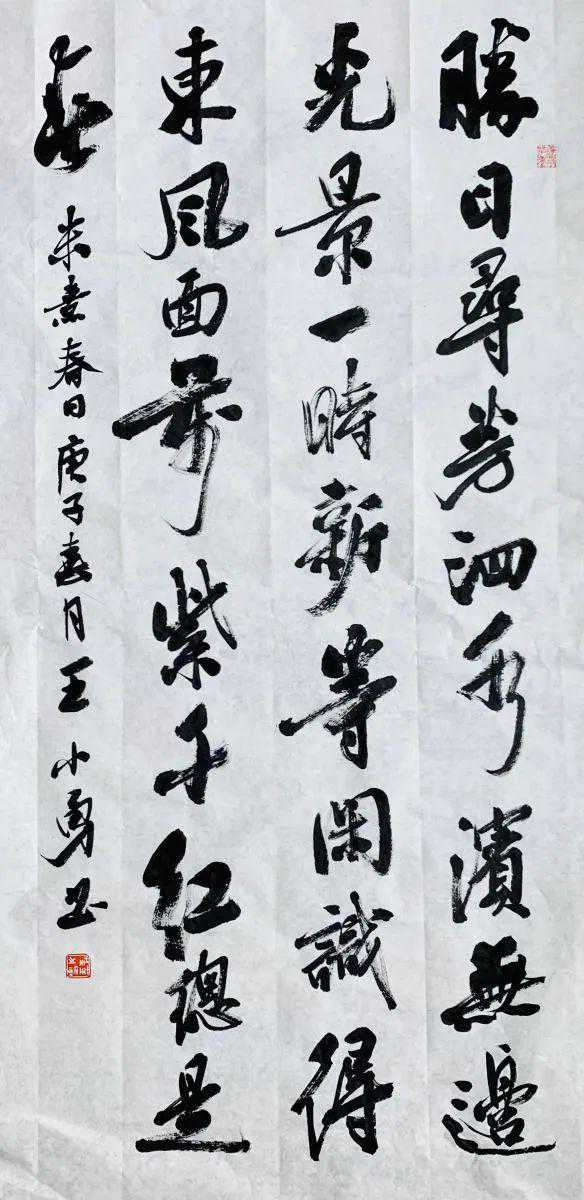 勝日尋芳泗水濱無邊
光景一時新等閑識得
東風面萬紫千紅總是
春
朱熹春日庚子月王小勇书